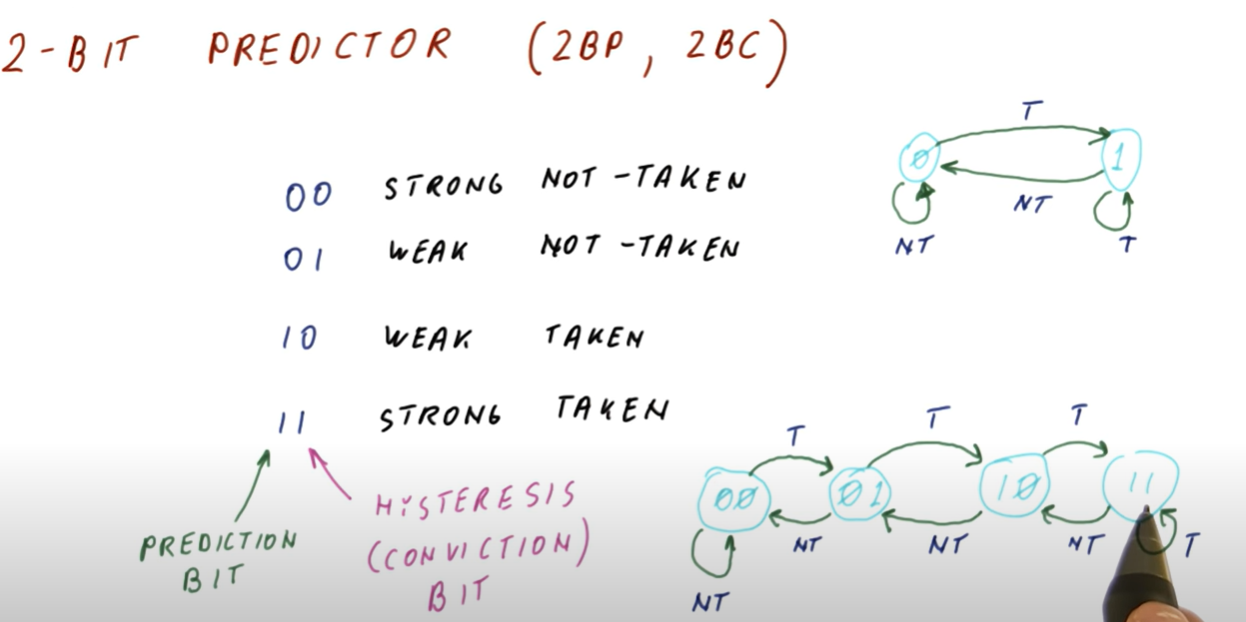 2-BIT PREDICTOR (2BP, 2BC)
00 STRONG NOT-TAKEN
01 WEAK NOT-TAKEN
10 WEAK TAKEN
11 STRONG TAKEN
PREDICTION
BIT
HYSTERESIS
(CONVICTION)
BIT
T
0 1
NT
NT T
T T T
00 01 10 11
NT NT NT T
NT